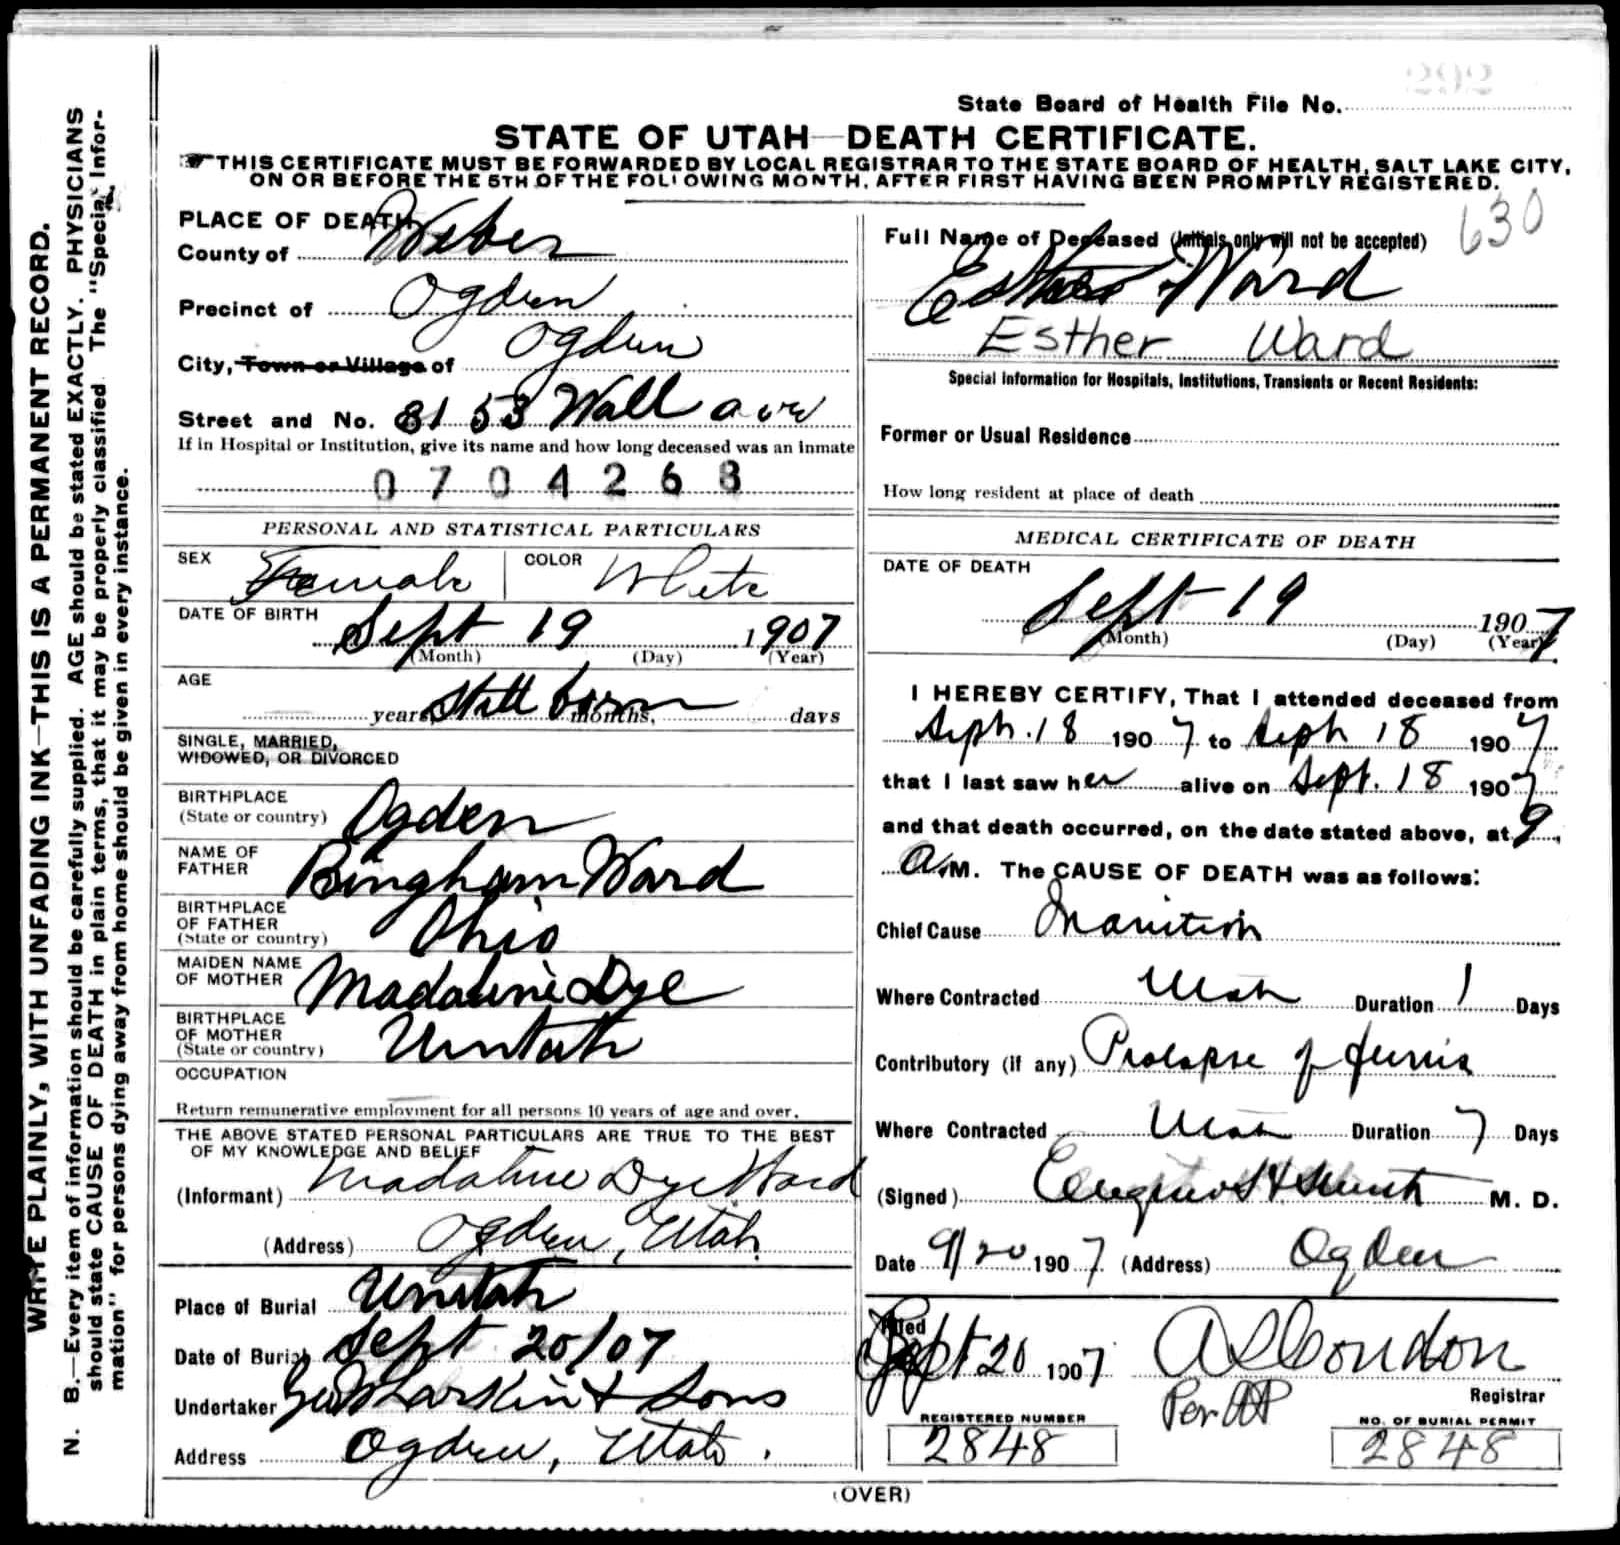 292
State Board of Health File No.
STATE OF UTAH—DEATH CERTIFICATE.
THIS CERTIFICATE MUST BE FORWARDED BY LOCAL REGISTRAR TO THE STATE BOARD OF HEALTH, SALT LAKE CITY,
ON OR BEFORE THE 5TH OF THE FOLLOWING MONTH, AFTER FIRST HAVING BEEN PROMPTLY REGISTERED.
WRITE PLAINLY, WITH UNFADING INK—THIS IS A PERMANENT RECORD.
N. B.—Every item of information should be carefully supplied. AGE should be stated EXACTLY. PHYSICIANS
should state CAUSE OF DEATH in plain terms, that it may be properly classified. The "Special Infor-
mation" for persons dying away from home should be given in every instance.
PLACE OF DEATH
County of Weber
Precinct of Ogden
City, Town or Village of Ogden
Street and No. 3153 Wall ave
If in Hospital or Institution, give its name and how long deceased was an inmate
0704268
PERSONAL AND STATISTICAL PARTICULARS
SEX Female COLOR White
DATE OF BIRTH
Sept 19 1907
(Month) (Day) (Year)
AGE
years, Still born months, days
SINGLE, MARRIED,
WIDOWED, OR DIVORCED
BIRTHPLACE
(State or country) Ogden
NAME OF
FATHER Bingham Ward
BIRTHPLACE
OF FATHER
(State or country) Ohio
MAIDEN NAME
OF MOTHER Madaline Dye
BIRTHPLACE
OF MOTHER
(State or country) Uintah
OCCUPATION
Return remunerative employment for all persons 10 years of age and over.
THE ABOVE STATED PERSONAL PARTICULARS ARE TRUE TO THE BEST
OF MY KNOWLEDGE AND BELIEF
(Informant) Madaline Dye Ward
(Address) Ogden, Utah
Place of Burial Uintah
Date of Burial Sept 20/07
Undertaker Geo W Larkin & Sons
Address Ogden, Utah.
630
Full Name of Deceased (Initials only will not be accepted)
Esther Ward
Esther Ward
Special Information for Hospitals, Institutions, Transients or Recent Residents:
Former or Usual Residence
How long resident at place of death
MEDICAL CERTIFICATE OF DEATH
DATE OF DEATH
Sept 19 1907
(Month) (Day) (Year)
I HEREBY CERTIFY, That I attended deceased from
Sept. 18 1907 to Sept 18 1907
that I last saw her alive on Sept. 18 1907
and that death occurred, on the date stated above, at 9
A.M. The CAUSE OF DEATH was as follows:
Chief Cause Inanition
Where Contracted Utah Duration 1 Days
Contributory (if any) Prolapse of funis
Where Contracted Utah Duration 7 Days
(Signed) M. D.
Date 9/20 1907 (Address) Ogden
Filed
Sept 20 1907 A S Condon
Registrar
Per
REGISTERED NUMBER
2848
NO. OF BURIAL PERMIT
2848
(OVER)